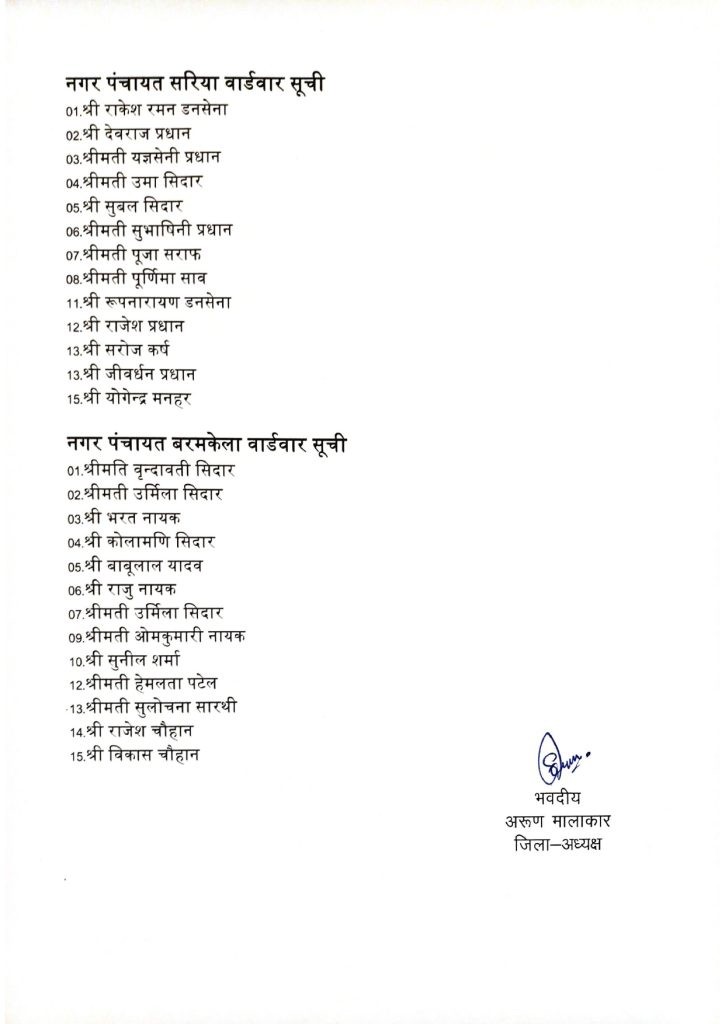 नगर पंचायत सरिया वार्डवार सूची
01.श्री राकेश रमन डनसेना
02.श्री देवराज प्रधान
03.श्रीमती यज्ञसेनी प्रधान
04.श्रीमती उमा सिदार
05.श्री सुबल सिदार
06.श्रीमती सुभाषिनी प्रधान
07.श्रीमती पूजा सराफ
08.श्रीमती पूर्णिमा साव
11.श्री रूपनारायण डनसेना
12.श्री राजेश प्रधान
13.श्री सरोज कर्ष
13.श्री जीवर्धन प्रधान
15.श्री योगेन्द्र मनहर
नगर पंचायत बरमकेला वार्डवार सूची
01.श्रीमति वृन्दावती सिदार
02.श्रीमती उर्मिला सिदार
03.श्री भरत नायक
04.श्री कोलामणि सिदार
05.श्री बाबूलाल यादव
06.श्री राजु नायक
07.श्रीमती उर्मिला सिदार
09.श्रीमती ओमकुमारी नायक
10.श्री सुनील शर्मा
12.श्रीमती हेमलता पटेल
13.श्रीमती सुलोचना सारथी
14.श्री राजेश चौहान
15.श्री विकास चौहान
भवदीय
अरूण मालाकार
जिला–अध्यक्ष